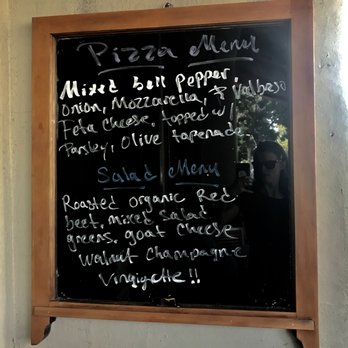 Pizza Menu
Mixed bell pepper,
Onion, Mozzarella, & Valbreso
Feta Cheese, topped w/
Parsley, Olive tapenade
Salad Menu
Roasted organic Red
beet, mixed Salad
greens, goat Cheese
Walnut Champagne
Vinaigrette!!